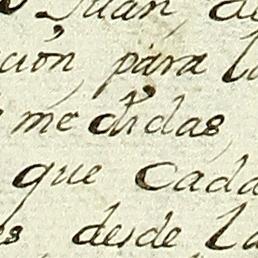 Juan, de
ción, para la
medidas,
que cada
es desde la